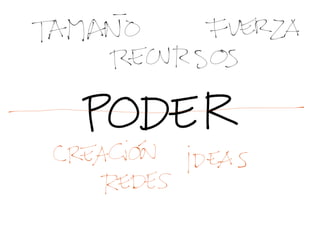 TAMAÑO FUERZA
RECURSOS
PODER
CREACIÓN iDEAS
REDES